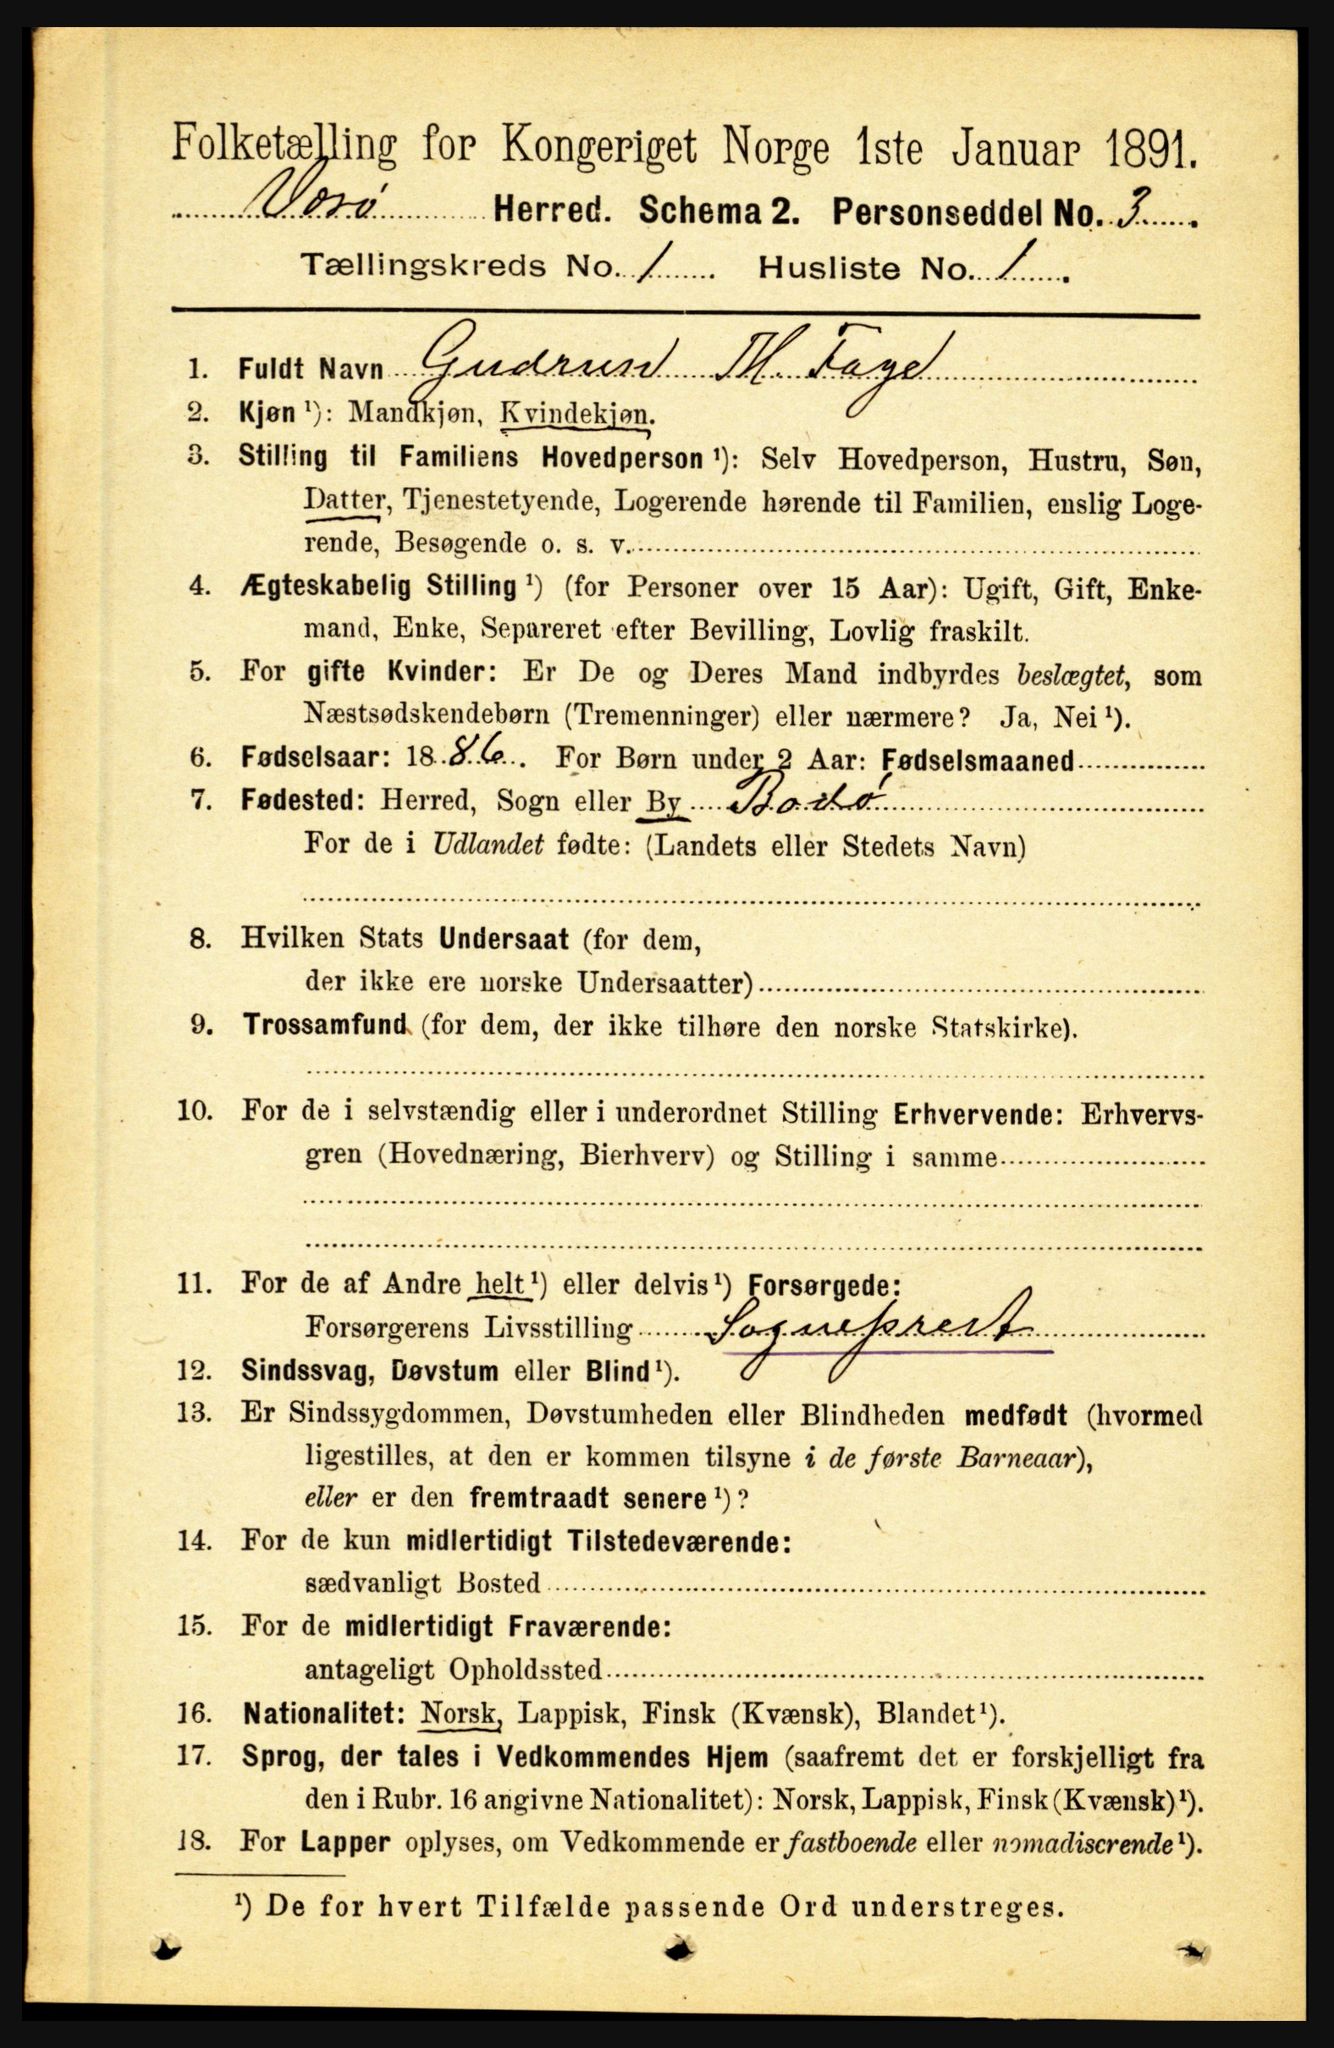 Folketælling for Kongeriget Norge 1ste Januar 1891.
Værø Herred. Schema 2. Personseddel No. 3.
Tællingskreds No. 1. Husliste No. 1.
1. Fuldt Navn Gudrun M. Faye
2. Kjøn ¹): Mandkjøn, Kvindekjøn.
3. Stilling til Familiens Hovedperson ¹): Selv Hovedperson, Hustru, Søn,
Datter, Tjenestetyende, Logerende hørende til Familien, enslig Loge-
rende, Besøgende o. s. v.
4. Ægteskabelig Stilling ¹) (for Personer over 15 Aar): Ugift, Gift, Enke-
mand, Enke, Separeret efter Bevilling, Lovlig fraskilt.
5. For gifte Kvinder: Er De og Deres Mand indbyrdes beslægtet, som
Næstsødskendebørn (Tremenninger) eller nærmere? Ja, Nei ¹).
6. Fødselsaar: 1886. For Børn under 2 Aar: Fødselsmaaned
7. Fødested: Herred, Sogn eller By Bodø
For de i Udlandet fødte: (Landets eller Stedets Navn)
8. Hvilken Stats Undersaat (for dem,
der ikke ere norske Undersaatter)
9. Trossamfund (for dem, der ikke tilhøre den norske Statskirke).
10. For de i selvstændig eller i underordnet Stilling Erhvervende: Erhvervs-
gren (Hovednæring, Bierhverv) og Stilling i samme
11. For de af Andre helt ¹) eller delvis ¹) Forsørgede:
Forsørgerens Livsstilling Sogneprest
12. Sindssvag, Døvstum eller Blind ¹).
13. Er Sindssygdommen, Døvstumheden eller Blindheden medfødt (hvormed
ligestilles, at den er kommen tilsyne i de første Barneaar),
eller er den fremtraadt senere ¹)?
14. For de kun midlertidigt Tilstedeværende:
sædvanligt Bosted
15. For de midlertidigt Fraværende:
antageligt Opholdssted
16. Nationalitet: Norsk, Lappisk, Finsk (Kvænsk), Blandet ¹).
17. Sprog, der tales i Vedkommendes Hjem (saafremt det er forskjelligt fra
den i Rubr. 16 angivne Nationalitet): Norsk, Lappisk, Finsk (Kvænsk) ¹).
18. For Lapper oplyses, om Vedkommende er fastboende eller nomadiserende ¹).
¹) De for hvert Tilfælde passende Ord understreges.